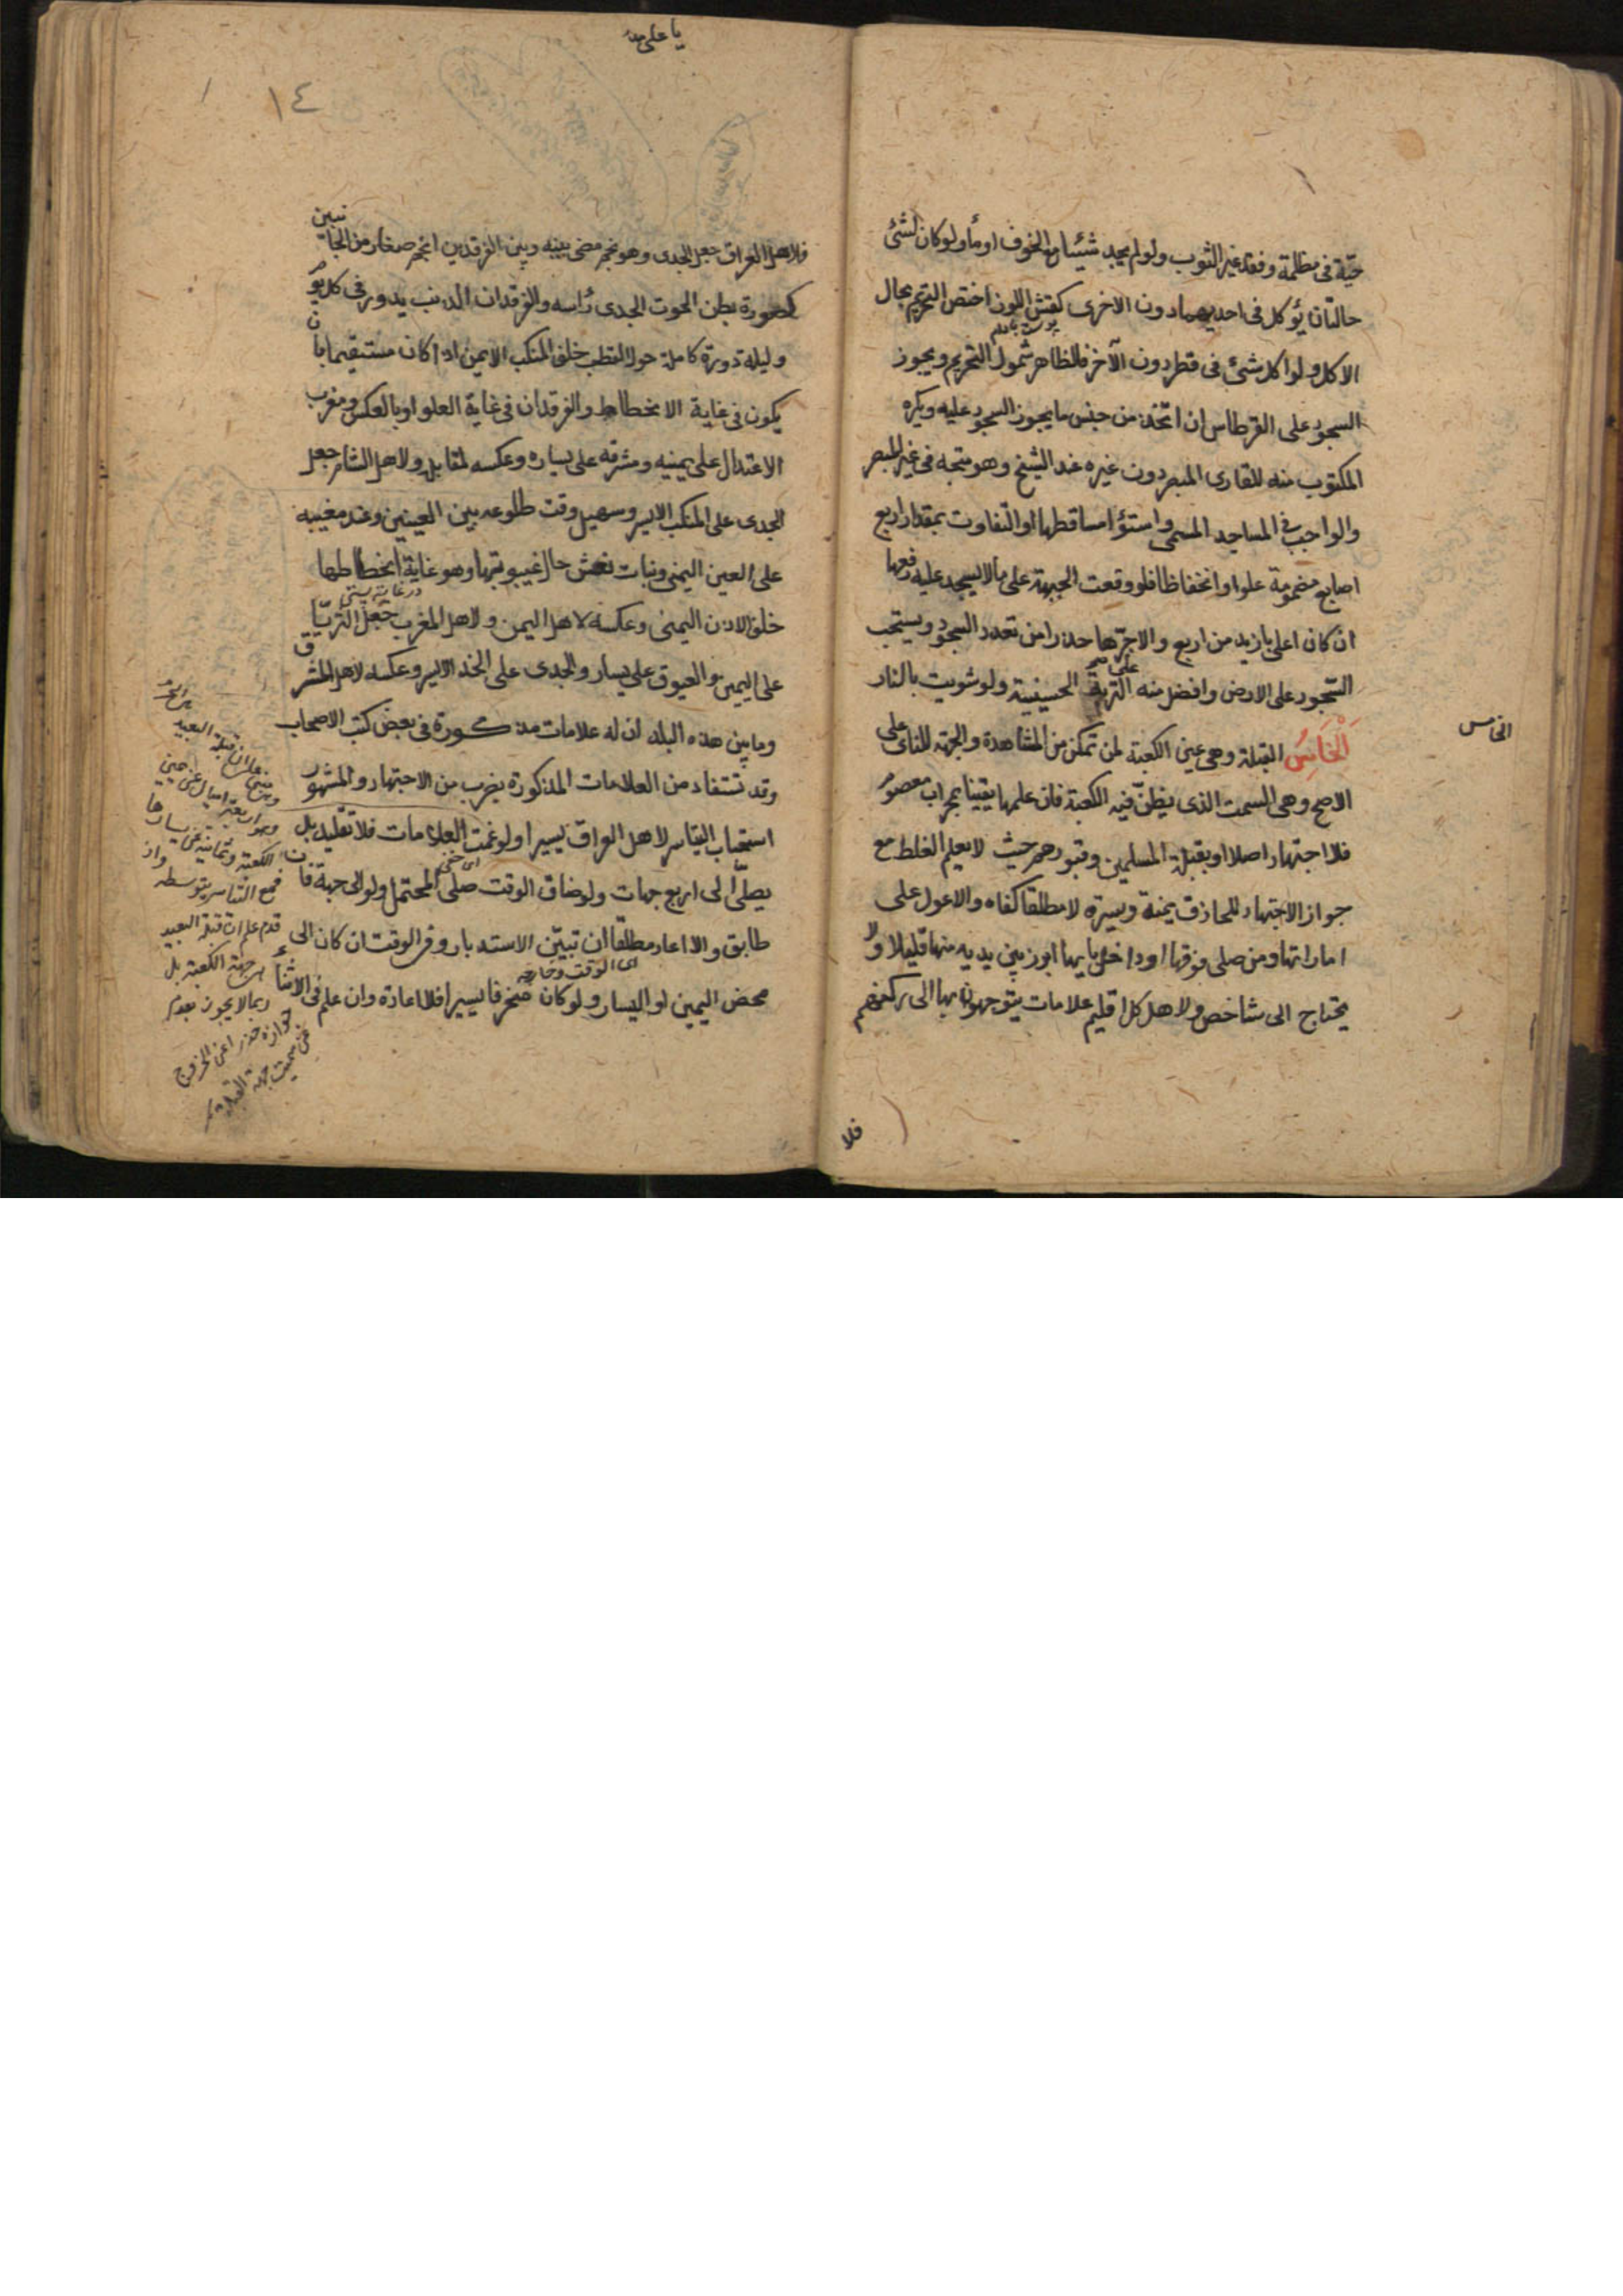 حيّة فى مظلمة وفقد غير الثوب ولو لم يجد شيئا مع الخوف اومأ ولو كان لشئ
حالتان يؤكل فى احديهما دون الاخرى كقشر اللوز اختص التحريم بحال
پوست بادام
الاكل ولو اكل شئ فى قطر دون الآخر فالظاهر شمول التحريم ويجوز
السجود على القرطاس ان اتخذ من جنس ما يجوز السجود عليه ويكره
المكتوب منه للقارى المبصر دون غيره عند الشيخ وهو متجه فى غير المبصر
والواجب فى المساجد المسمى واستواء مساقطها او التفاوت بمقدار اربع
اصابع مضمومة علوا وانخفاظا فلو وقعت الجبهة على ما لا يسجد عليه رفعها
ان كان اعلى بازيد من اربع والا جرّها حذرا من تعدد السجود ويستحب
السّجود على الارض وافضل منه التربة الحسينية ولو شويت بالنار
الخامس
اَلْخَامِسُ القبلة وهى عين الكعبة لمن تمكن من المشاهدة والجهة للنائى على
الاصح وهى السمت الذى يظنّ فيه الكعبة فان علمها يقينا بمحراب معصوم
فلا اجتهاد اصلا او بقبلة المسلمين وقبورهم حيث لا يعلم الغلط مع
جواز الاجتهاد للحاذق يمنة ويسرة لا مطلقا كفاه والا عول على
اماراتها ومن صلى فوقها او داخلها ابرز بين يديه منها قليلا ولا
يحتاج الى شاخص ولاهل كل اقليم علامات يتوجهون بها الى ركنهم
فلا
يا على مدد
١٤
فلاهل العراق جعل الجدى وهو نجم مضى بينه وبين الفرقدين انجم صغار من الجانبين
كصورة بطن الحوت الجدى رأسه والفرقدان الذنب يدور فى كل يوم
وليلة دورة كاملة حول القطب خلف المنكب الايمن اذا كان مستقيما بان
يكون فى غاية الانخطاط والفرقدان فى غاية العلو او بالعكس ومغرب
الاعتدال على يمينه ومشرقه على يساره وعكسه لمقابله ولاهل الشام جعل
الجدى على المنكب الايسر وسهيل وقت طلوعه بين العينين وعند مغيبه
على العين اليمنى وبنات نعش حال غيبوبتها وهو غاية انخطاطها
در غايت پستى
خلف الاذن اليمنى وعكسه لاهل اليمن ولاهل المغرب جعل الثريّا
على اليمين والعيوق على يسار والجدى على الخد الايسر وعكسه لاهل المشرق
وما بين هذه البلدان له علامات مذكورة فى بعض كتب الاصحاب
وقد تستفاد من العلامات المذكورة بضرب من الاجتهاد والمشهور
استحباب التياسر لاهل العراق يسيرا ولو غمت العلامات فلا تقليد بل
اى خفى
يصلّى الى اربع جهات ولو ضاق الوقت صلى المحتمل ولو الى جهة فان
طابق والا اعاد مطلقا ان تبيّن الاستدبار وفى الوقت ان كان الى
اى الوقت وخارجه
محض اليمين او اليسار ولو كان منحرفا يسيرا فلا اعادة وان علم فى الاثناء
قبلة البعيد
الكعبة وثمانية عن يسارها
فمع التياسر يتوسطه
قدم علم ان قبلة البعيد
جهة الكعبة بل
ربما لا يجوز بعدم
جوازه حذرا عن الخروج
عن سمت جهة القبلة